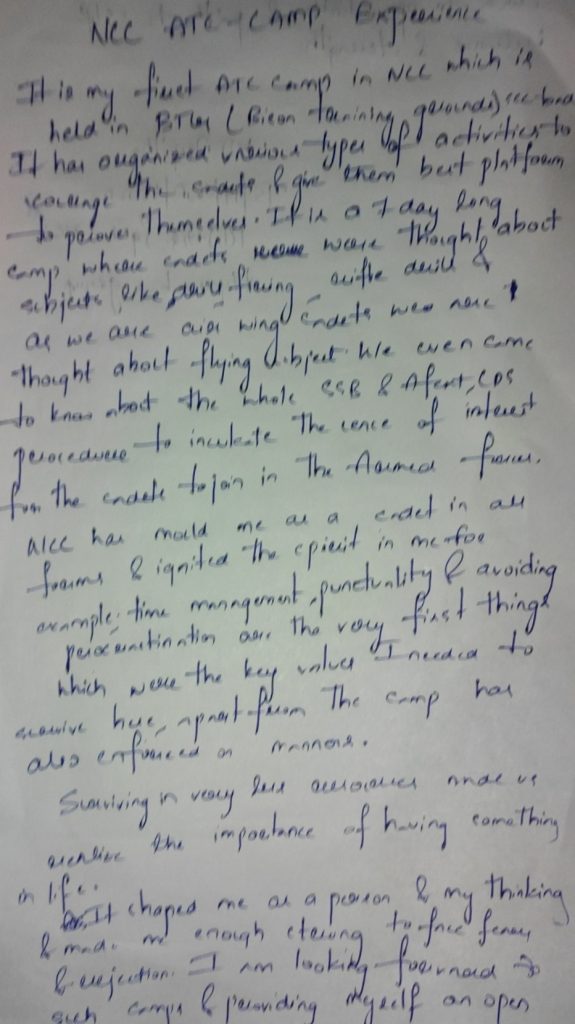 NCC ATC CAMP Experience
It is my first ATC camp in NCC which is
held in BTG (Bison training grounds) sec-bad
It has organized various types of activities to
courage the cadets & give them best platform
to proves Themselves. It is a 7 day long
camp where cadets were thought about
subjects like drill, firing, rifle drill &
as we are air wing cadets we were
thought about flying subject. We even came
to know about the whole SSB & Afcat, CDS
procedure to inculcate the sence of interest
from the cadets to join in the Armed forces.
NCC has mould me as a cadet in all
forms & ignited the spirit in me for
example: time management, punctuality & avoiding
procrastination are the very first things
which were the key values I needed to
survive here, apart from The camp has
also enforced on manners.
Surviving in very less resources made us
realise the importance of having something
in life.
It shaped me as a person & my thinking
& made me enough strong to face fears
& rejection. I am looking forward to
such camps & providing myself an open